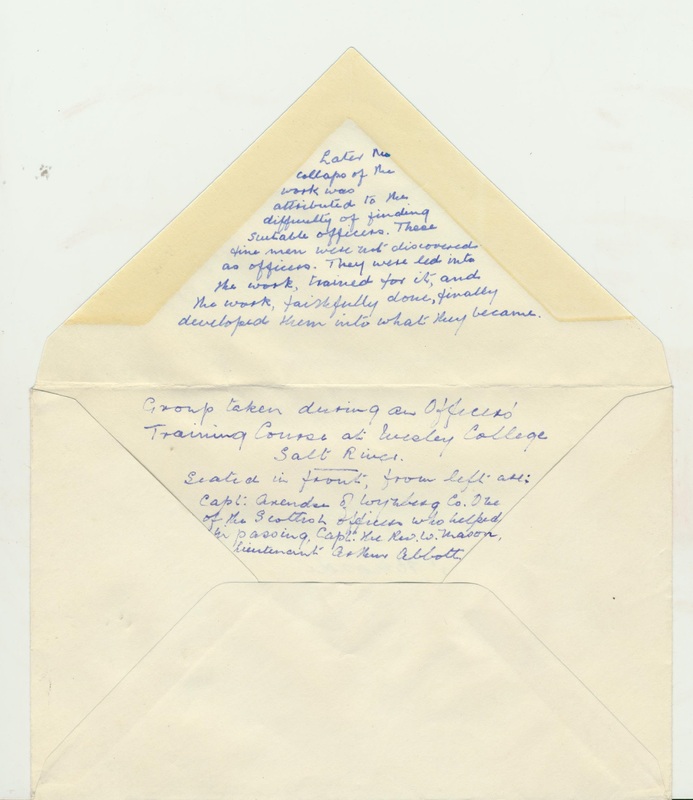 Later the
collaps of the
work was
attributed to the
difficulty of finding
suitable officers. These
fine men were not discovered
as officers. They were led into
the work, trained for it, and
the work, faithfully done, finally
developed them into what they became.
Group taken during an Officers'
Training Course at Wesley College
Salt River.
Seated in front, from left are:
Capt. Arendse of Wynberg Co. One
of the Scottish officers who helped
in passing, Capt. the Rev. W. Mason,
Lieutenant Arthur Abbott